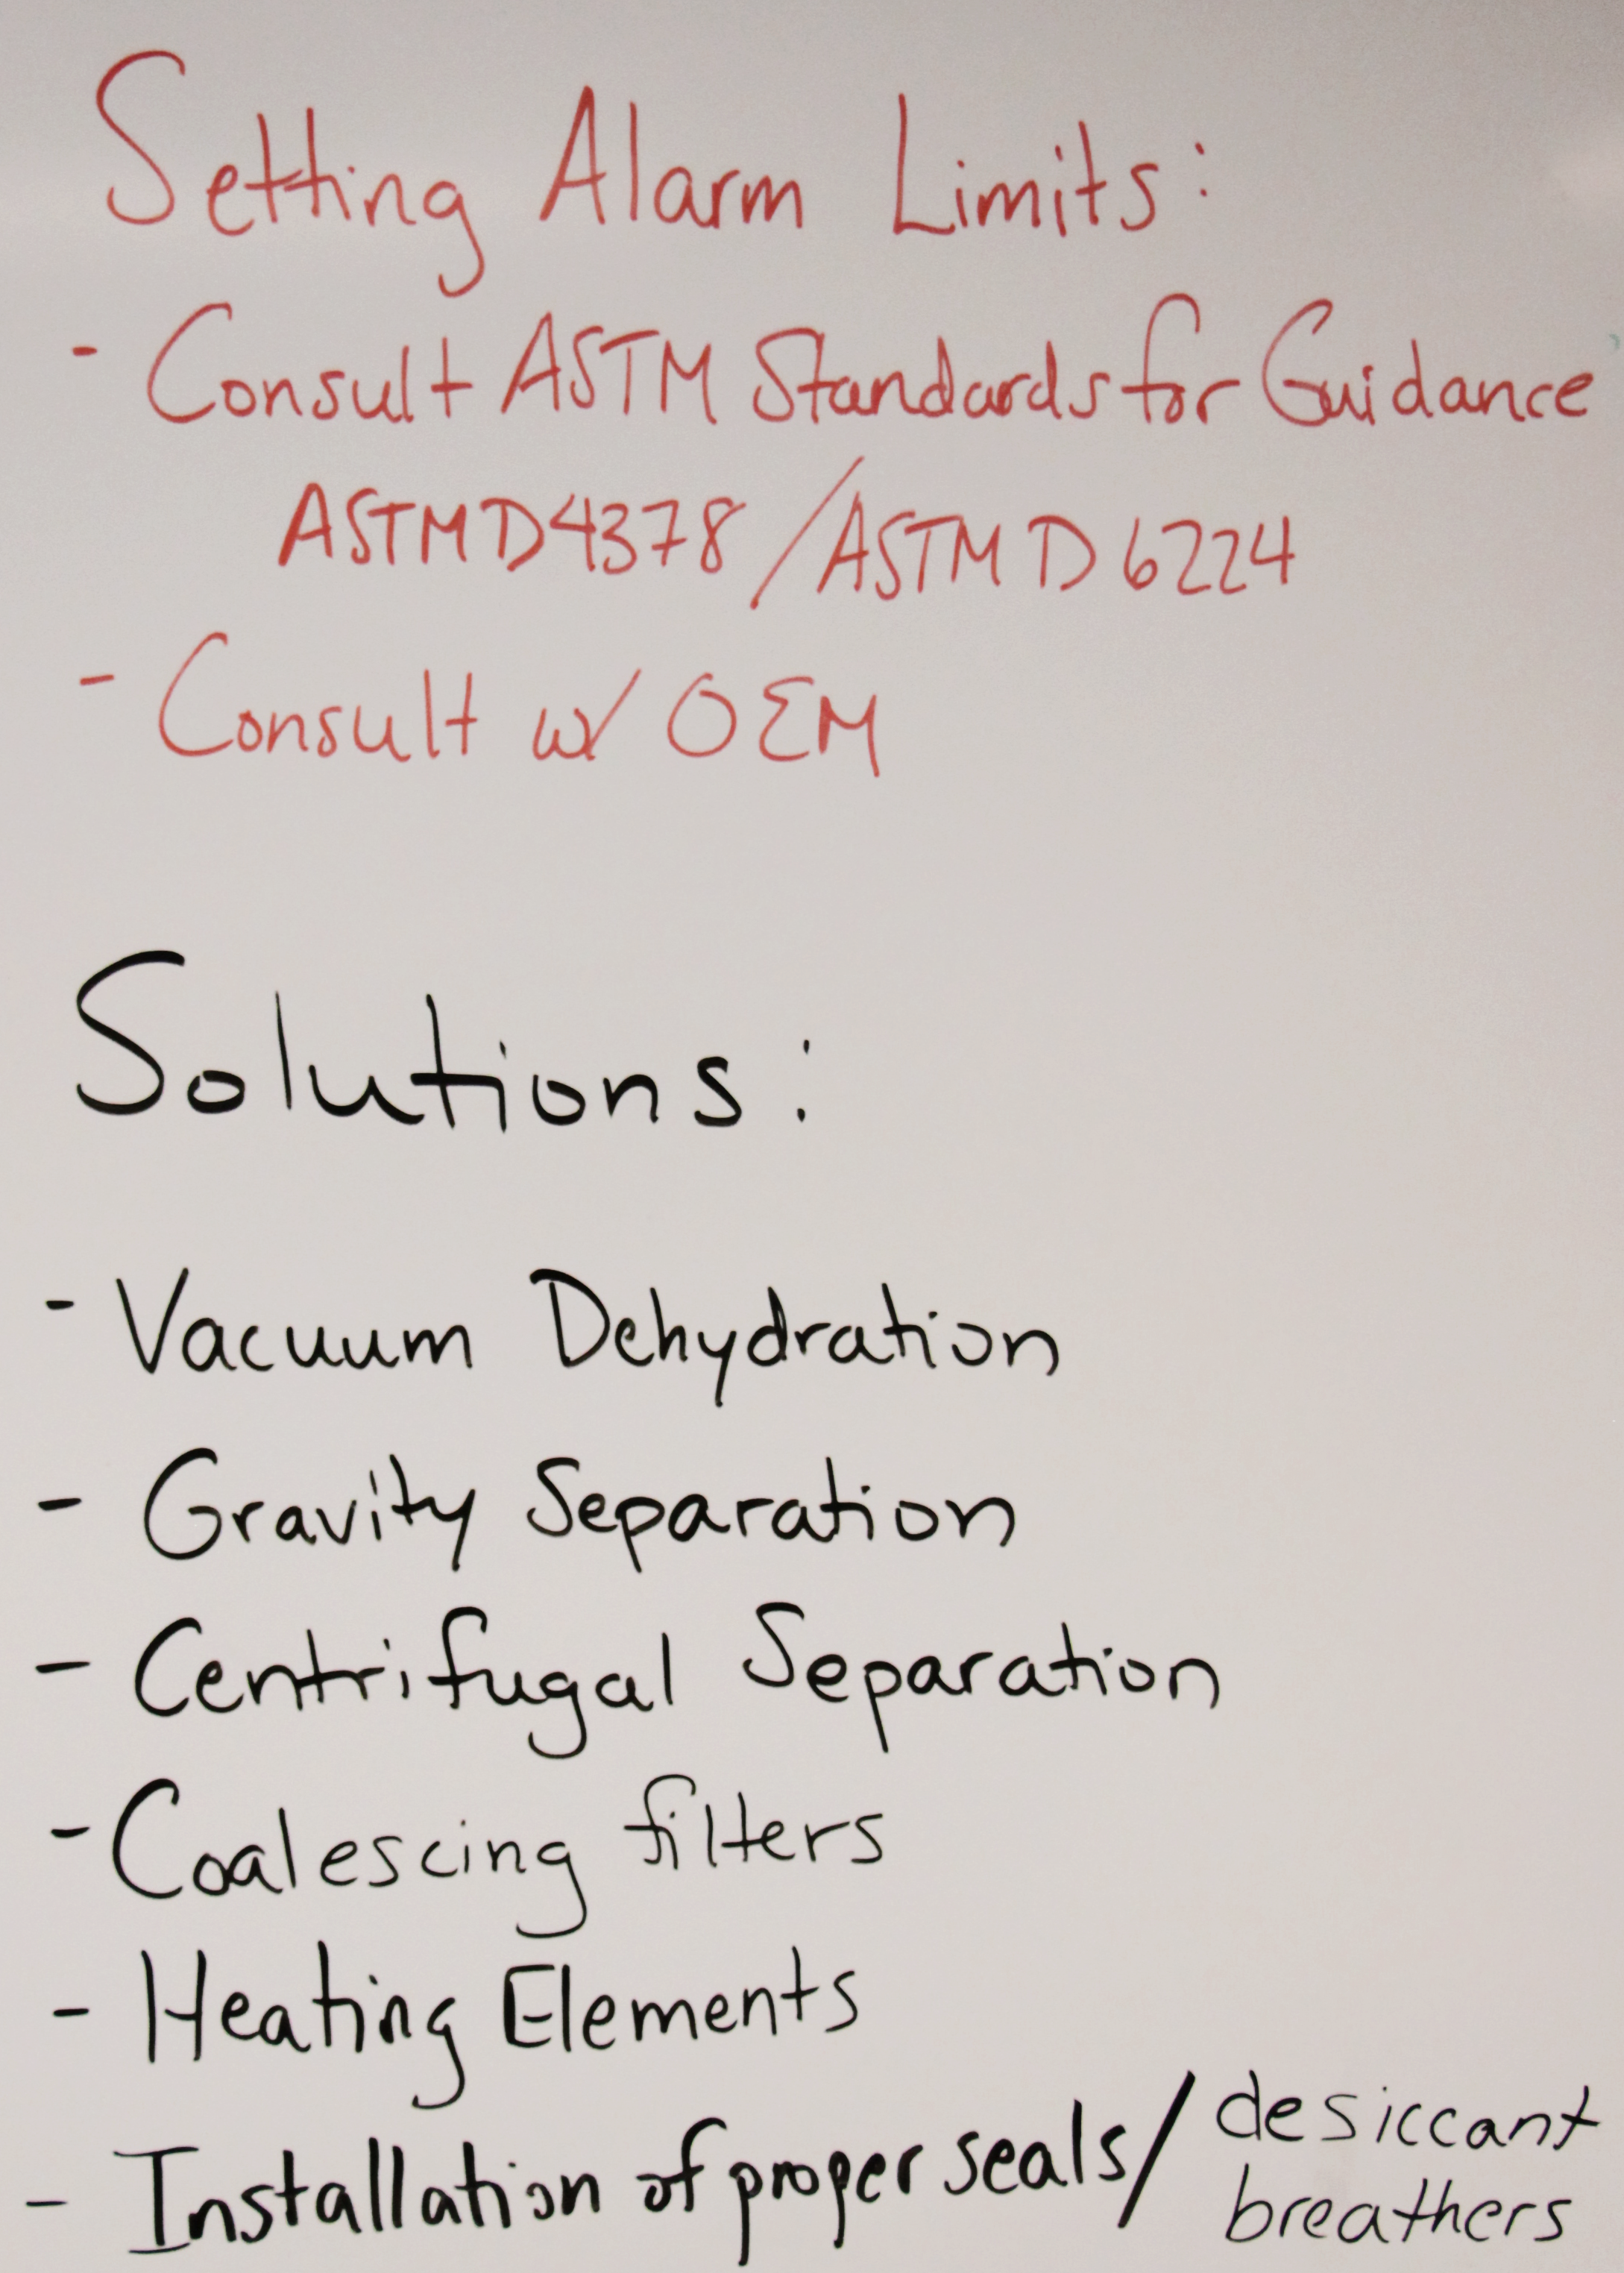 Setting Alarm Limits:
- Consult ASTM Standards for Guidance
ASTM D4378 / ASTM D 6224
- Consult w/ OEM
Solutions:
- Vacuum Dehydration
- Gravity Separation
- Centrifugal Separation
- Coalescing filters
- Heating Elements
- Installation of proper seals/ desiccant
breathers